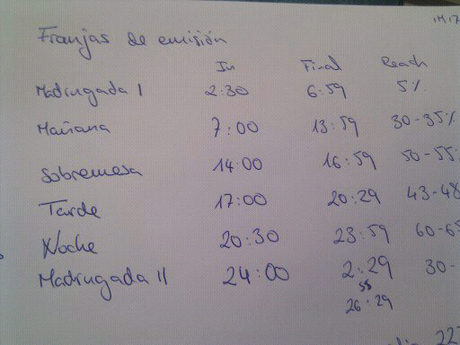 Franjas de emisión
In Final Reach
Madrugada I 2:30 6:59 5%
Mañana 7:00 13:59 30-35%
Sobremesa 14:00 16:59 50-55%
Tarde 17:00 20:29 43-48
Noche 20:30 23:59 60-65
Madrugada II 24:00 2:29 30-
26:29